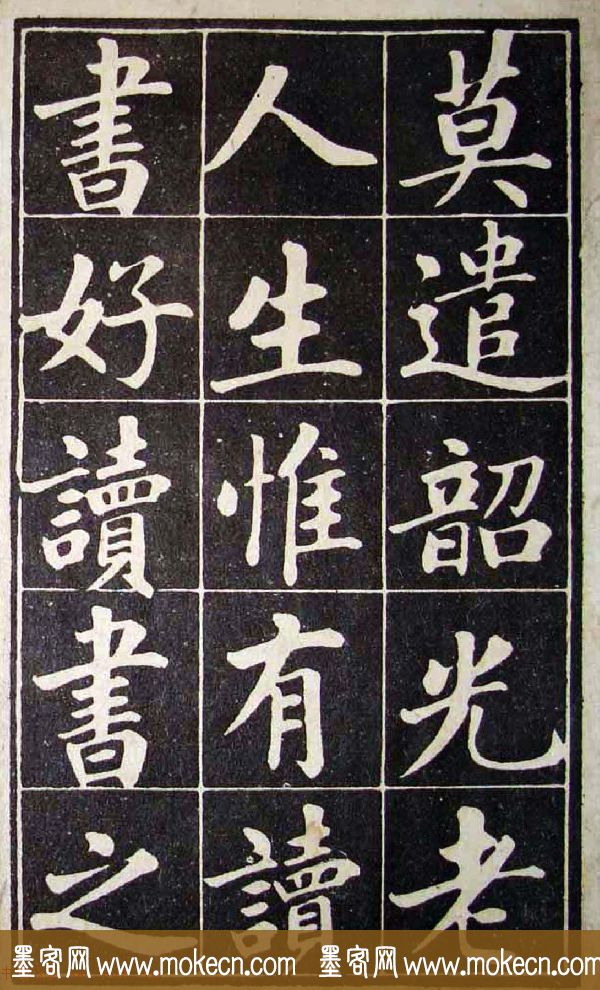 莫遣韶光老
人生惟有讀
書好讀書之
墨客网 www.mokecn.com 墨客网 www.mokecn.com